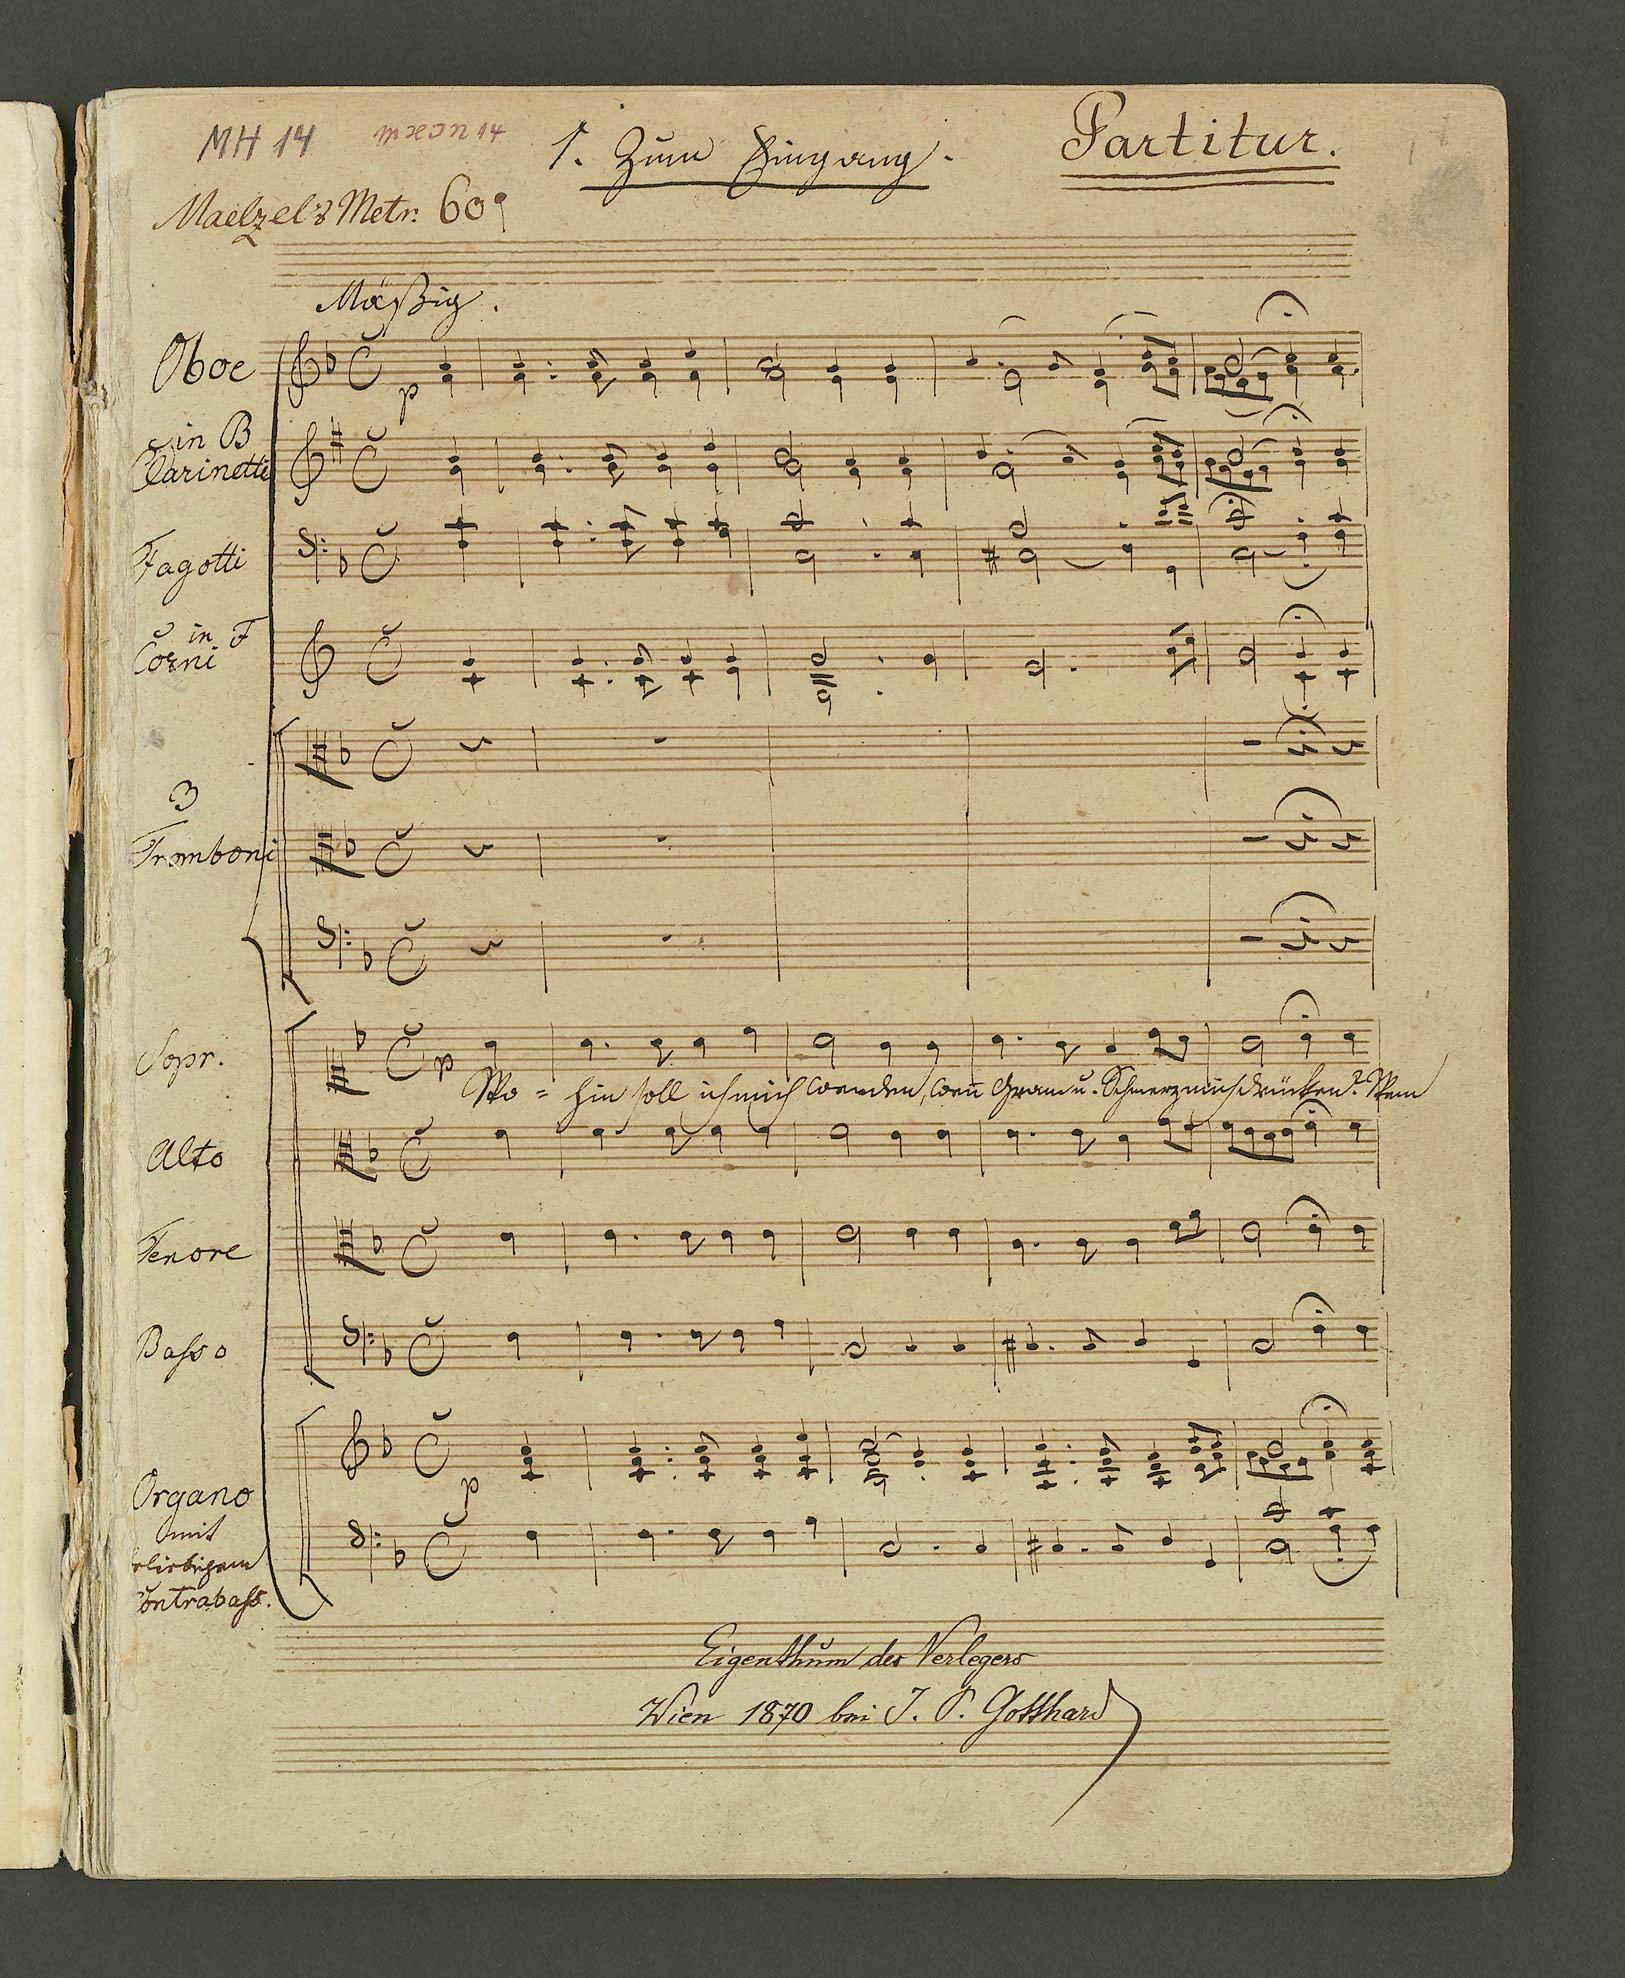 MH 14
1. Zum Eingang.
Partitur.
Maelzel's Metr. 60
Mäßig.
Oboe
p
in B
Clarinetti
Fagotti
in F
Corni
3
Tromboni
Sopr.
p
Wo = hin soll ich mich wenden, wen̄ Gram u. Schmerz mich drücken? Wem
Alto
Tenore
Basso
p
Organo
mit
beliebigem
Contrabass.
Eigenthum des Verlegers
Wien 1870 bei J. P. Gotthard